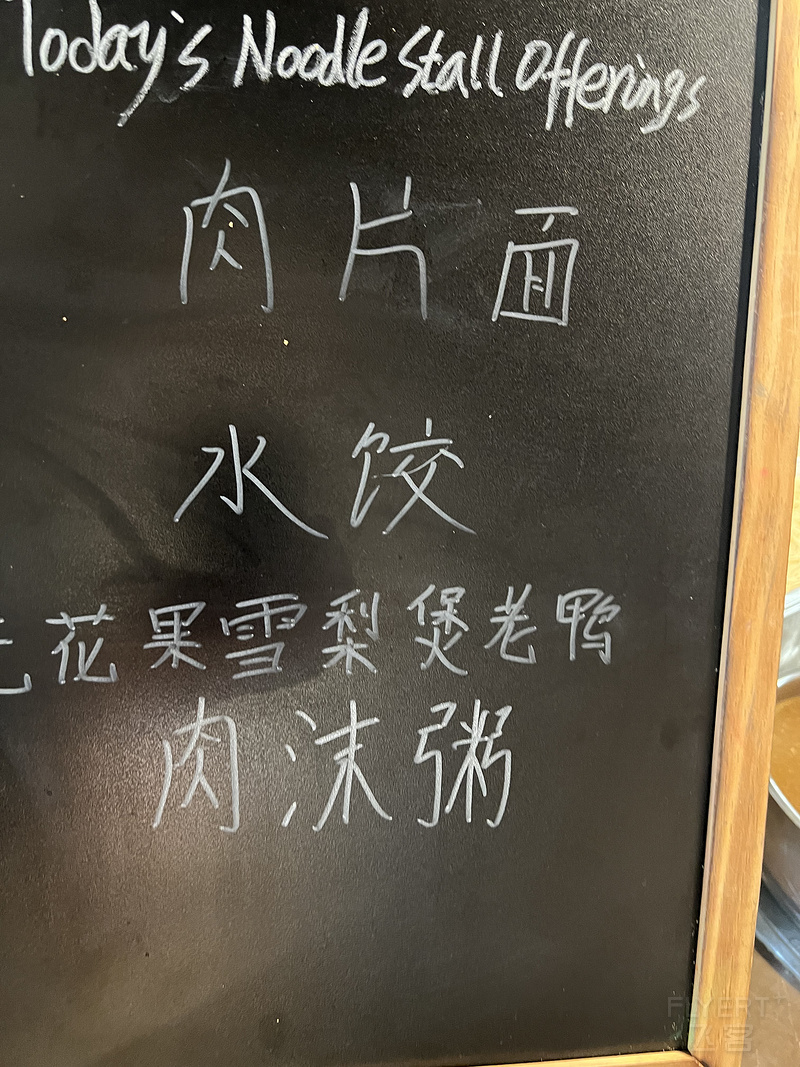 Today's Noodle Stall Offerings
肉片面
水饺
花果雪梨煲老鸭
肉沫粥
FLYERT
飞客